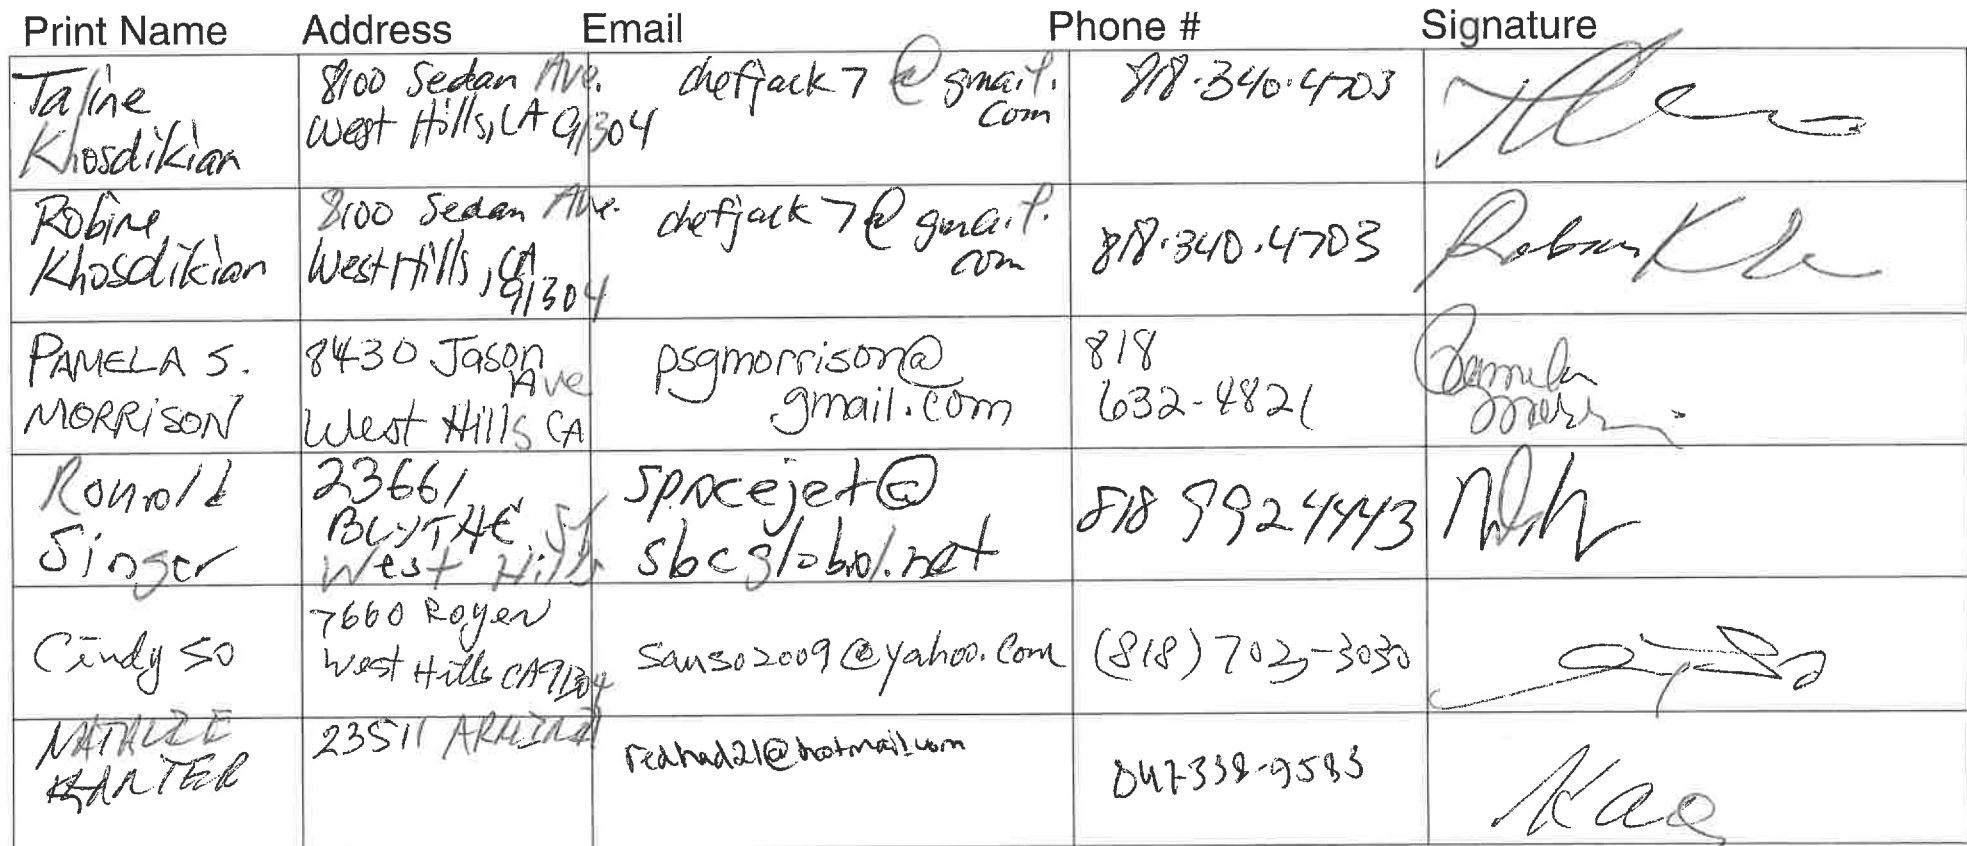 Print Name Address Email Phone # Signature
Taline Khosdikian
8100 Sedan Ave.
West Hills, CA 91304
chefjack7@gmail.
com
818.340.4703
Robine
Khosdikian
8100 Sedan Ave.
West Hills, CA
91304
chefjack7@gmail.
com
818.340.4703
PAMELA S.
MORRISON
8430 Jason
Ave
West Hills CA
psgmorrison@
gmail.com
818
632-4821
Pamela
Ronald
Singer
23661
BLYTHE St
West Hills
spacejet@
sbcglobal.net
818 992 4443
Cindy so
7660 Royer
West Hills CA 91304
sanso2009@yahoo.com
(818) 702-3030
NATALIE
KANTER
23511
redhad21@hotmail.com
847-338-9583